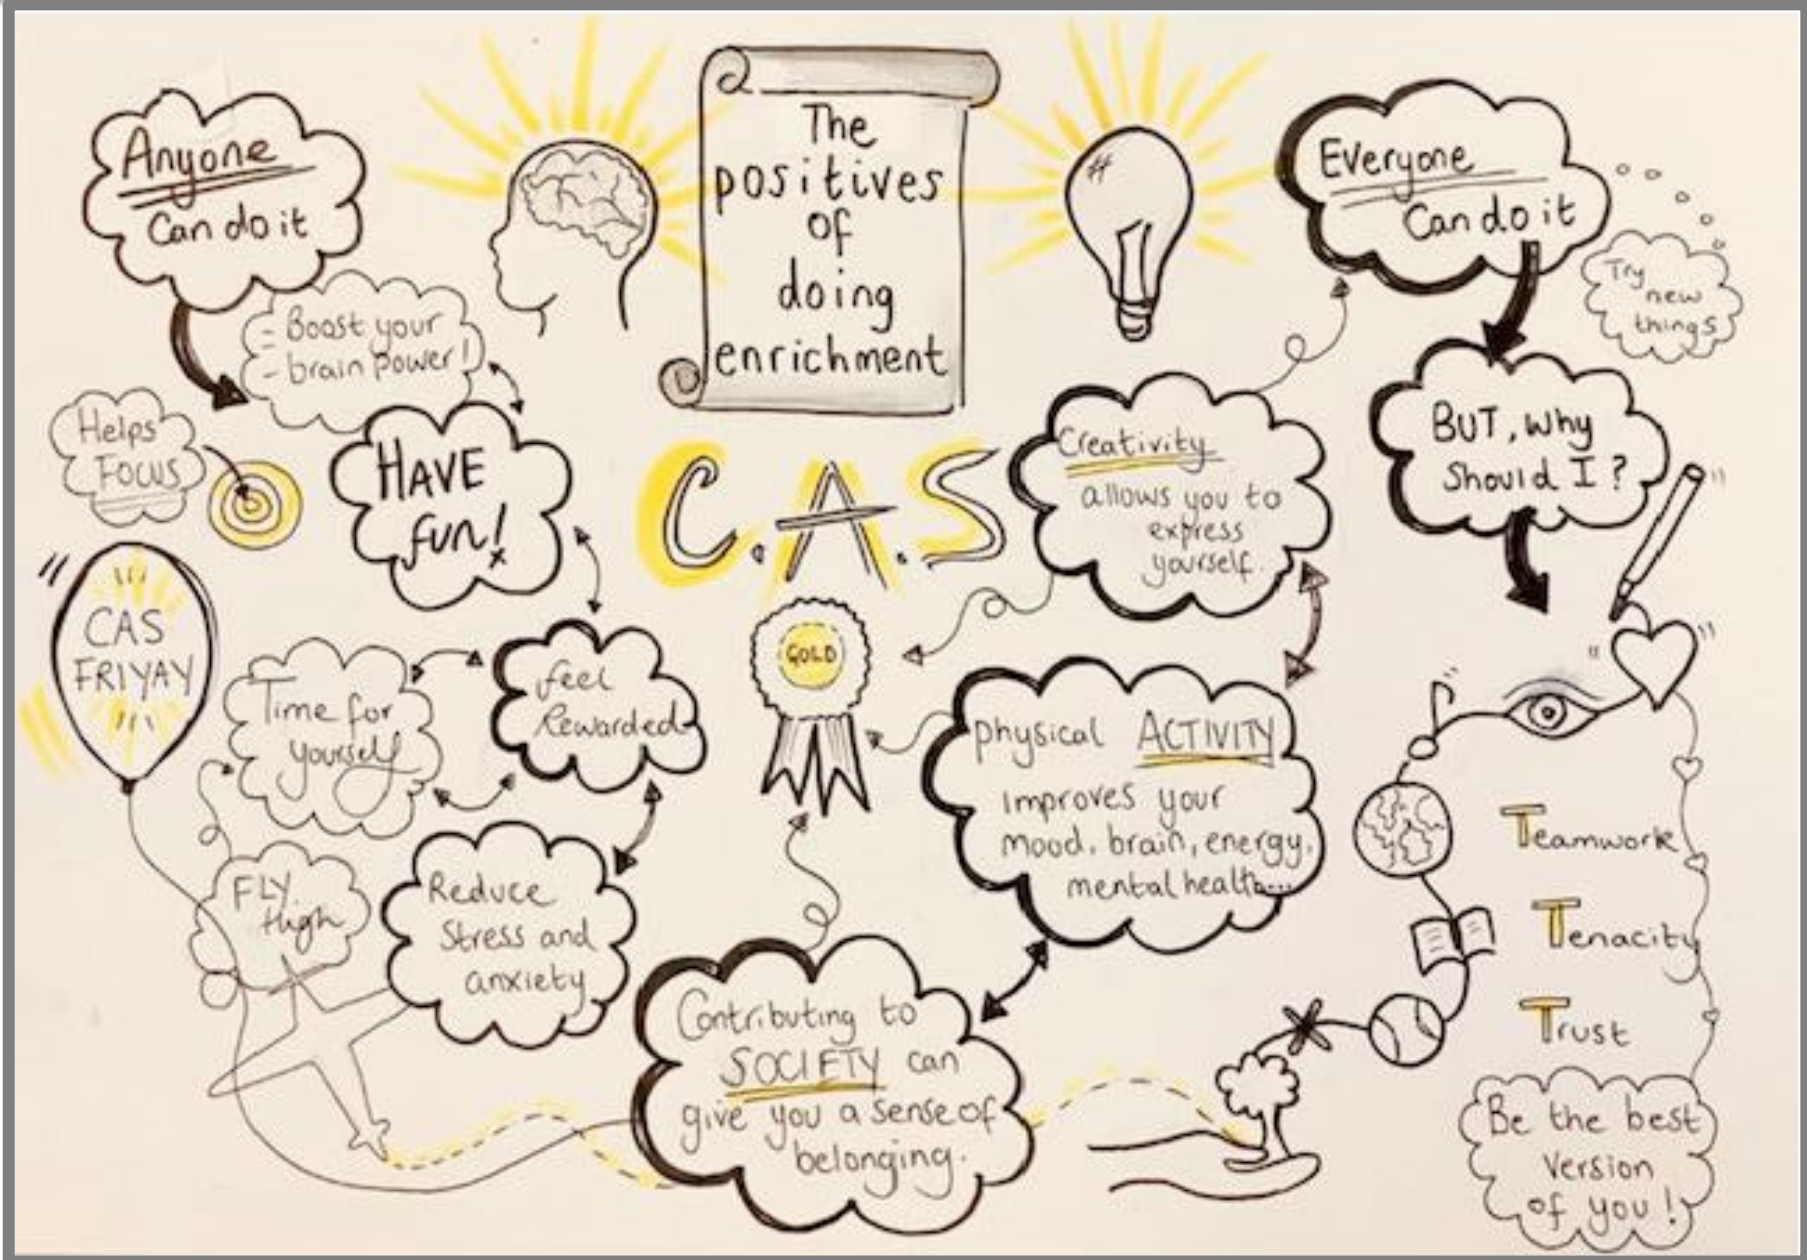 The
positives
of
doing
enrichment
Anyone
Can do it
- Boost your
- brain power!
Helps
Focus
HAVE
fun!
CAS
FRIYAY
Time for
yourself
feel
Rewarded
FLY
High
Reduce
Stress and
anxiety
C.A.S
GOLD
Creativity
allows you to
express
yourself.
physical ACTIVITY
improves your
mood, brain, energy,
mental health...
Contributing to
SOCIETY can
give you a sense of
belonging.
Everyone
Can do it
Try
new
things
BUT, why
Should I?
Teamwork
Tenacity
Trust
Be the best
Version
of you!